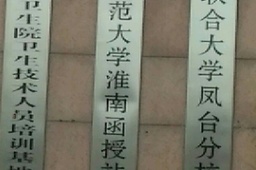 卫生院卫生技术人员培训基地
范大学淮南函授站
联合大学凤台分校